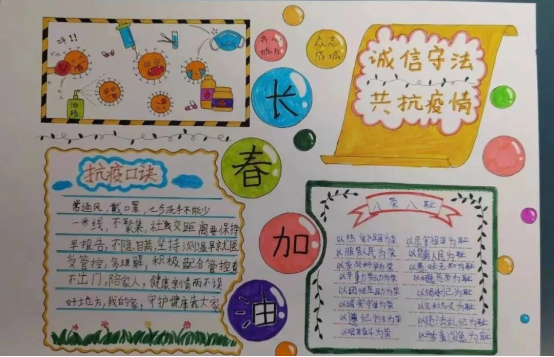 众志
成城
诚信守法
共抗疫情
长
春
加
油
抗疫口诀
常通风,戴口罩,七步洗手不能少
一米线,不聚集,社交距离要保持
早报告,不隐瞒,坚持测温早就医
受管控,多理解,积极配合管控者
不出门,陪家人,健康亲情两不误
好地方,我的家,守护健康靠大家
八荣八耻
以热爱祖国为荣 以危害祖国为耻
以服务人民为荣 以背离人民为耻
以崇尚科学为荣 以愚昧无知为耻
以辛勤劳动为荣 以好逸恶劳为耻
以团结互助为荣 以损人利己为耻
以诚实守信为荣 以见利忘义为耻
以遵纪守法为荣 以违法乱纪为耻
以艰苦奋斗为荣 以骄奢淫逸为耻